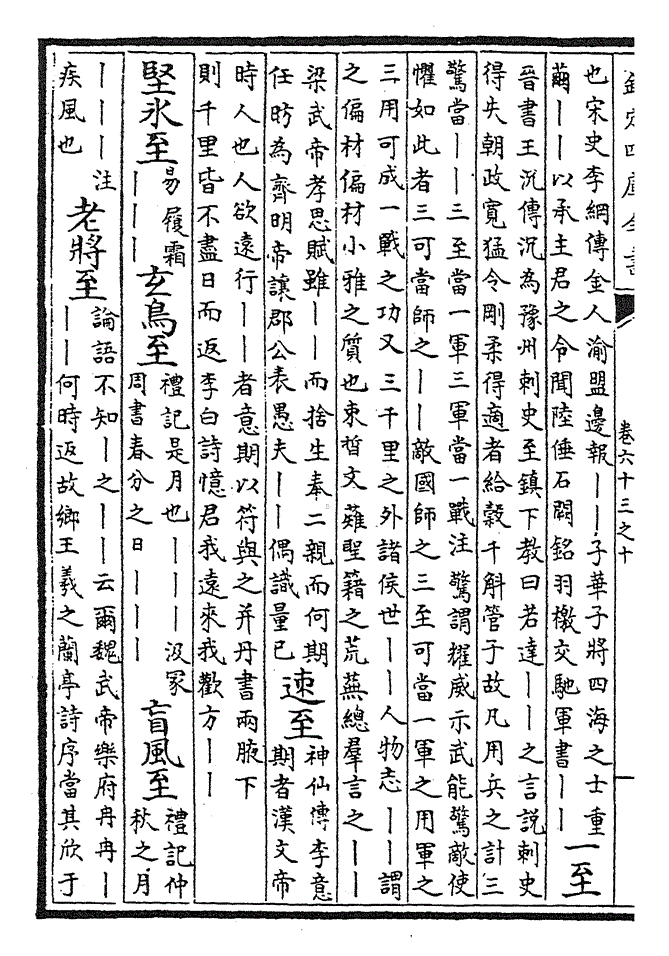 欽定四庫全書
卷六十三之十
也宋史李綱傳金人渝盟邊報丨丨子華子將四海之士重
繭丨丨以承主君之令聞陸倕石闕銘羽檄交馳軍書丨丨
一至
晉書王沉傳沉為豫州刺史至鎮下教曰若達丨丨之言說刺史
得失朝政寛猛令剛柔得適者給穀千斛管子故凡用兵之計三
驚當丨丨三至當一軍三軍當一戰注驚謂耀威示武能驚敵使
懼如此者三可當師之丨丨敵國師之三至可當一軍之用軍之
三用可成一戰之功又三千里之外諸侯世丨丨人物志丨丨謂
之偏材偏材小雅之質也束晳文薙聖籍之荒蕪總羣言之丨丨
梁武帝孝思賦雖丨丨而捨生奉二親而何期
任昉為齊明帝讓郡公表愚夫丨丨偶識量已
速至
神仙傳李意
期者漢文帝
時人也人欲遠行丨丨者意期以符與之并丹書兩腋下
則千里皆不盡日而返李白詩憶君我遠來我歡方丨丨
堅氷至
易履霜
丨丨丨
玄鳥至
禮記是月也丨丨丨汲冢
周書春分之日丨丨丨
盲風至
禮記仲
秋之月
丨丨丨注
疾風也
老將至
論語不知丨之丨丨云爾魏武帝樂府冉冉丨
丨丨何時返故鄉王羲之蘭亭詩序當其欣于